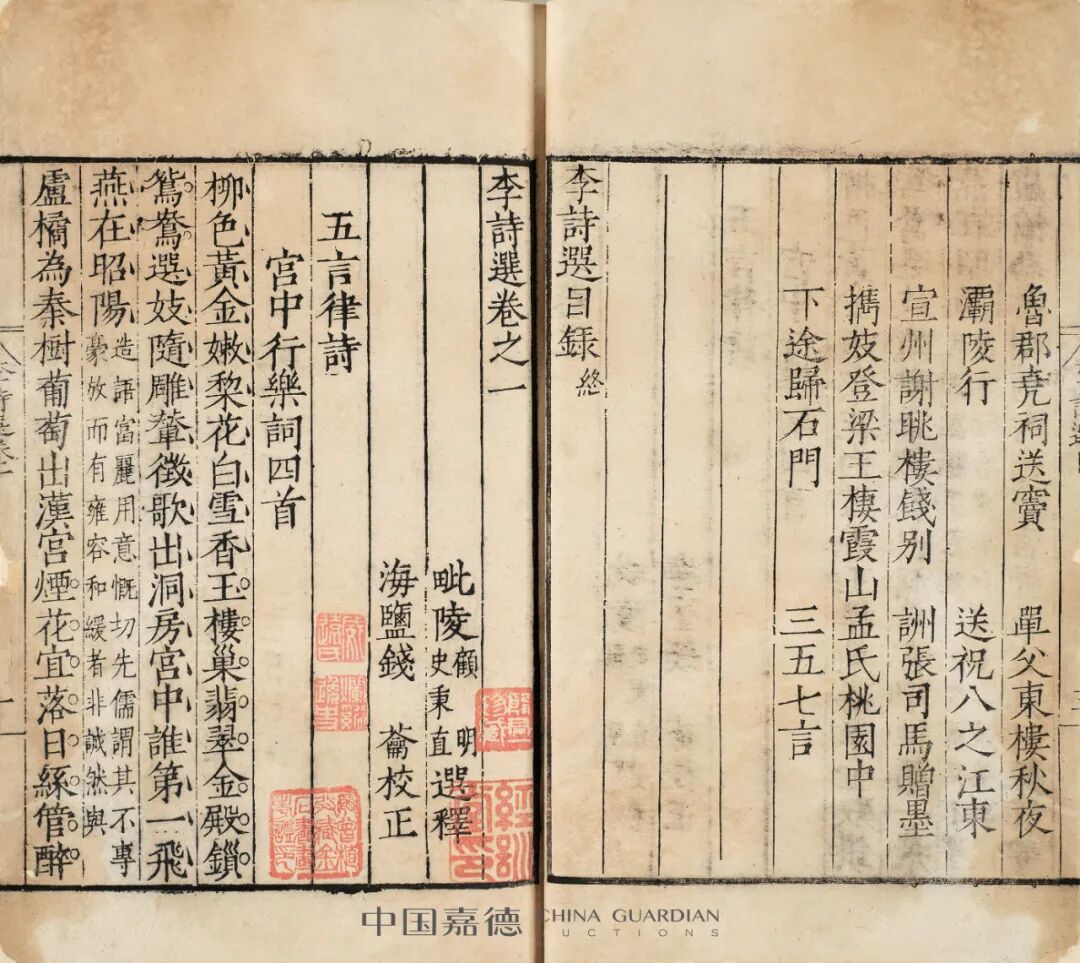 魯郡堯祠送竇 單父東樓秋夜
灞陵行 送祝八之江東
宣州謝眺樓餞别 詶張司馬贈墨
擕妓登梁王棲霞山孟氏桃園中
下途歸石門 三五七言
李詩選目錄終
李詩選卷之一
毗陵顧明史秉直選釋
海鹽錢 薌校正
五言律詩
宮中行樂詞四首
柳色黃金嫰棃花白雪香玉樓巢翡翠金殿鎻
鴛鴦選妓隨雕輦徵歌出洞房宮中誰第一飛
燕在昭陽造語富麗用意慨切先儒謂其不專豪放而有雍容和緩者非誠然與
盧橘為秦樹葡萄出漢宮煙花宜落日絲管醉
中国嘉德 CHINA GUARDIAN
AUCTIONS